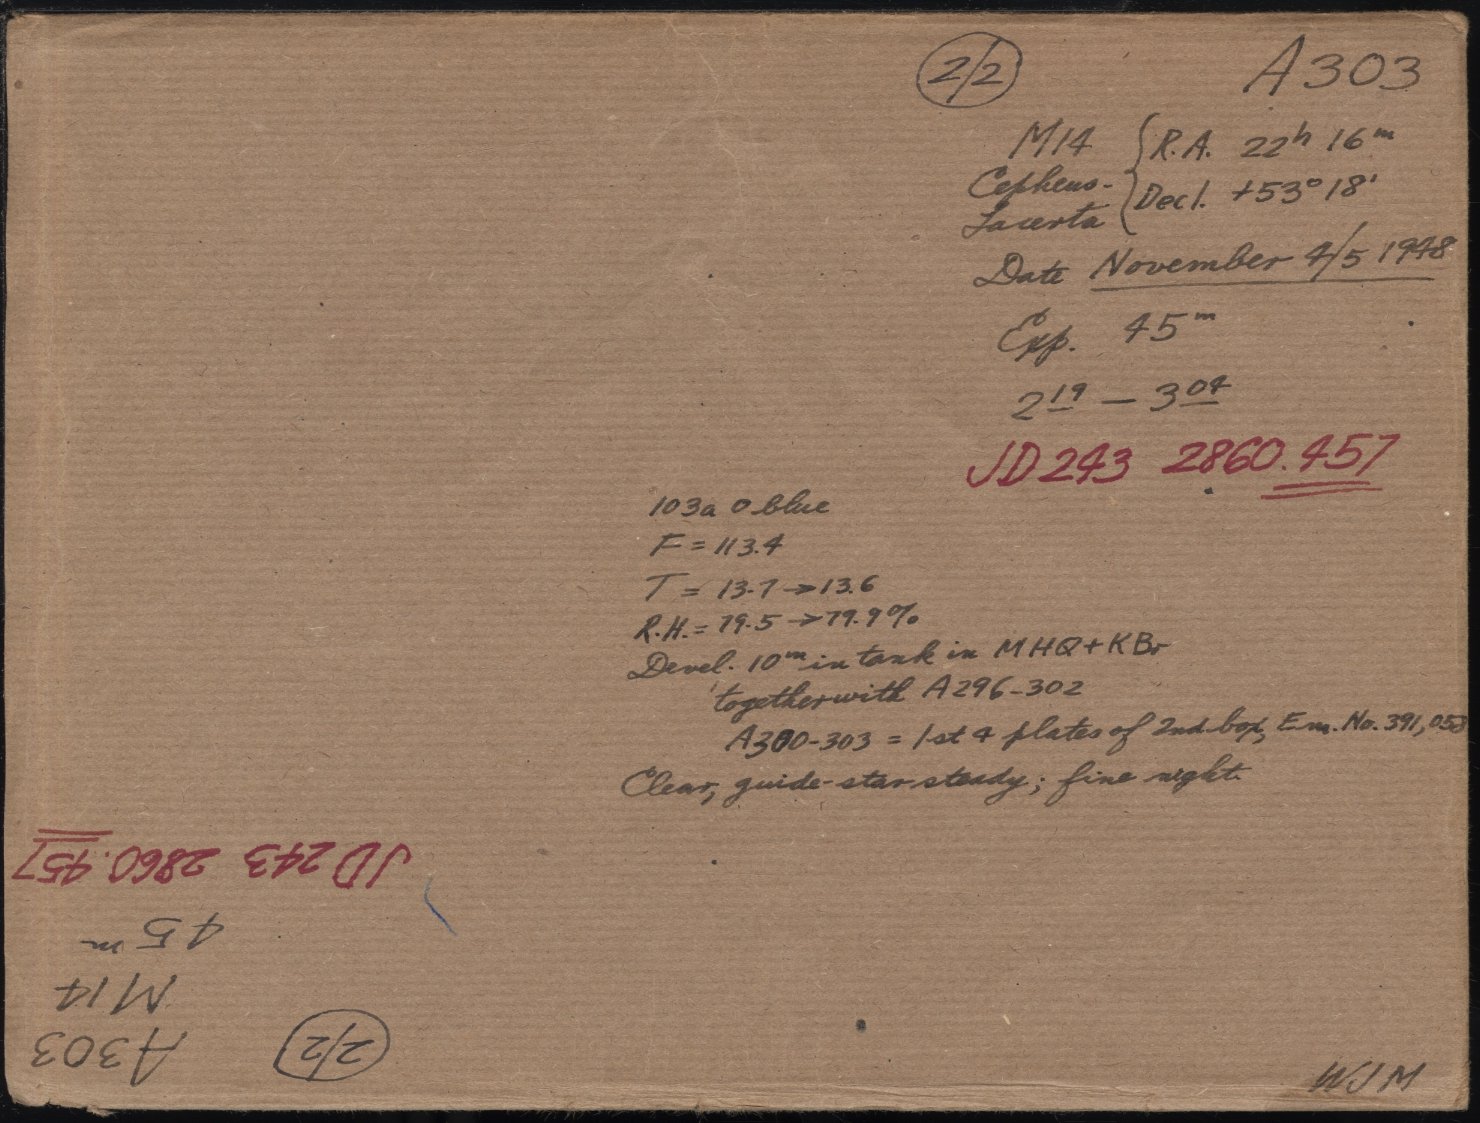 2/2 A303
M14 { R.A. 22h 16m
Cepheus- Decl. +53° 18'
Lacerta
Date November 4/5 1948
Exp. 45m
2 19 — 3 04
JD 243 2860.457
103a O blue
F = 113.4
T = 13.7 → 13.6
R.H. = 79.5 → 79.9%
Devel. 10m in tank in MHQ + KBr
together with A296-302
A300-303 = 1st 4 plates of 2nd box, Em. No. 391,053
Clear, guide-star steady; fine night.
WJM
2/2 A303
M14
45m
JD 243 2860.457